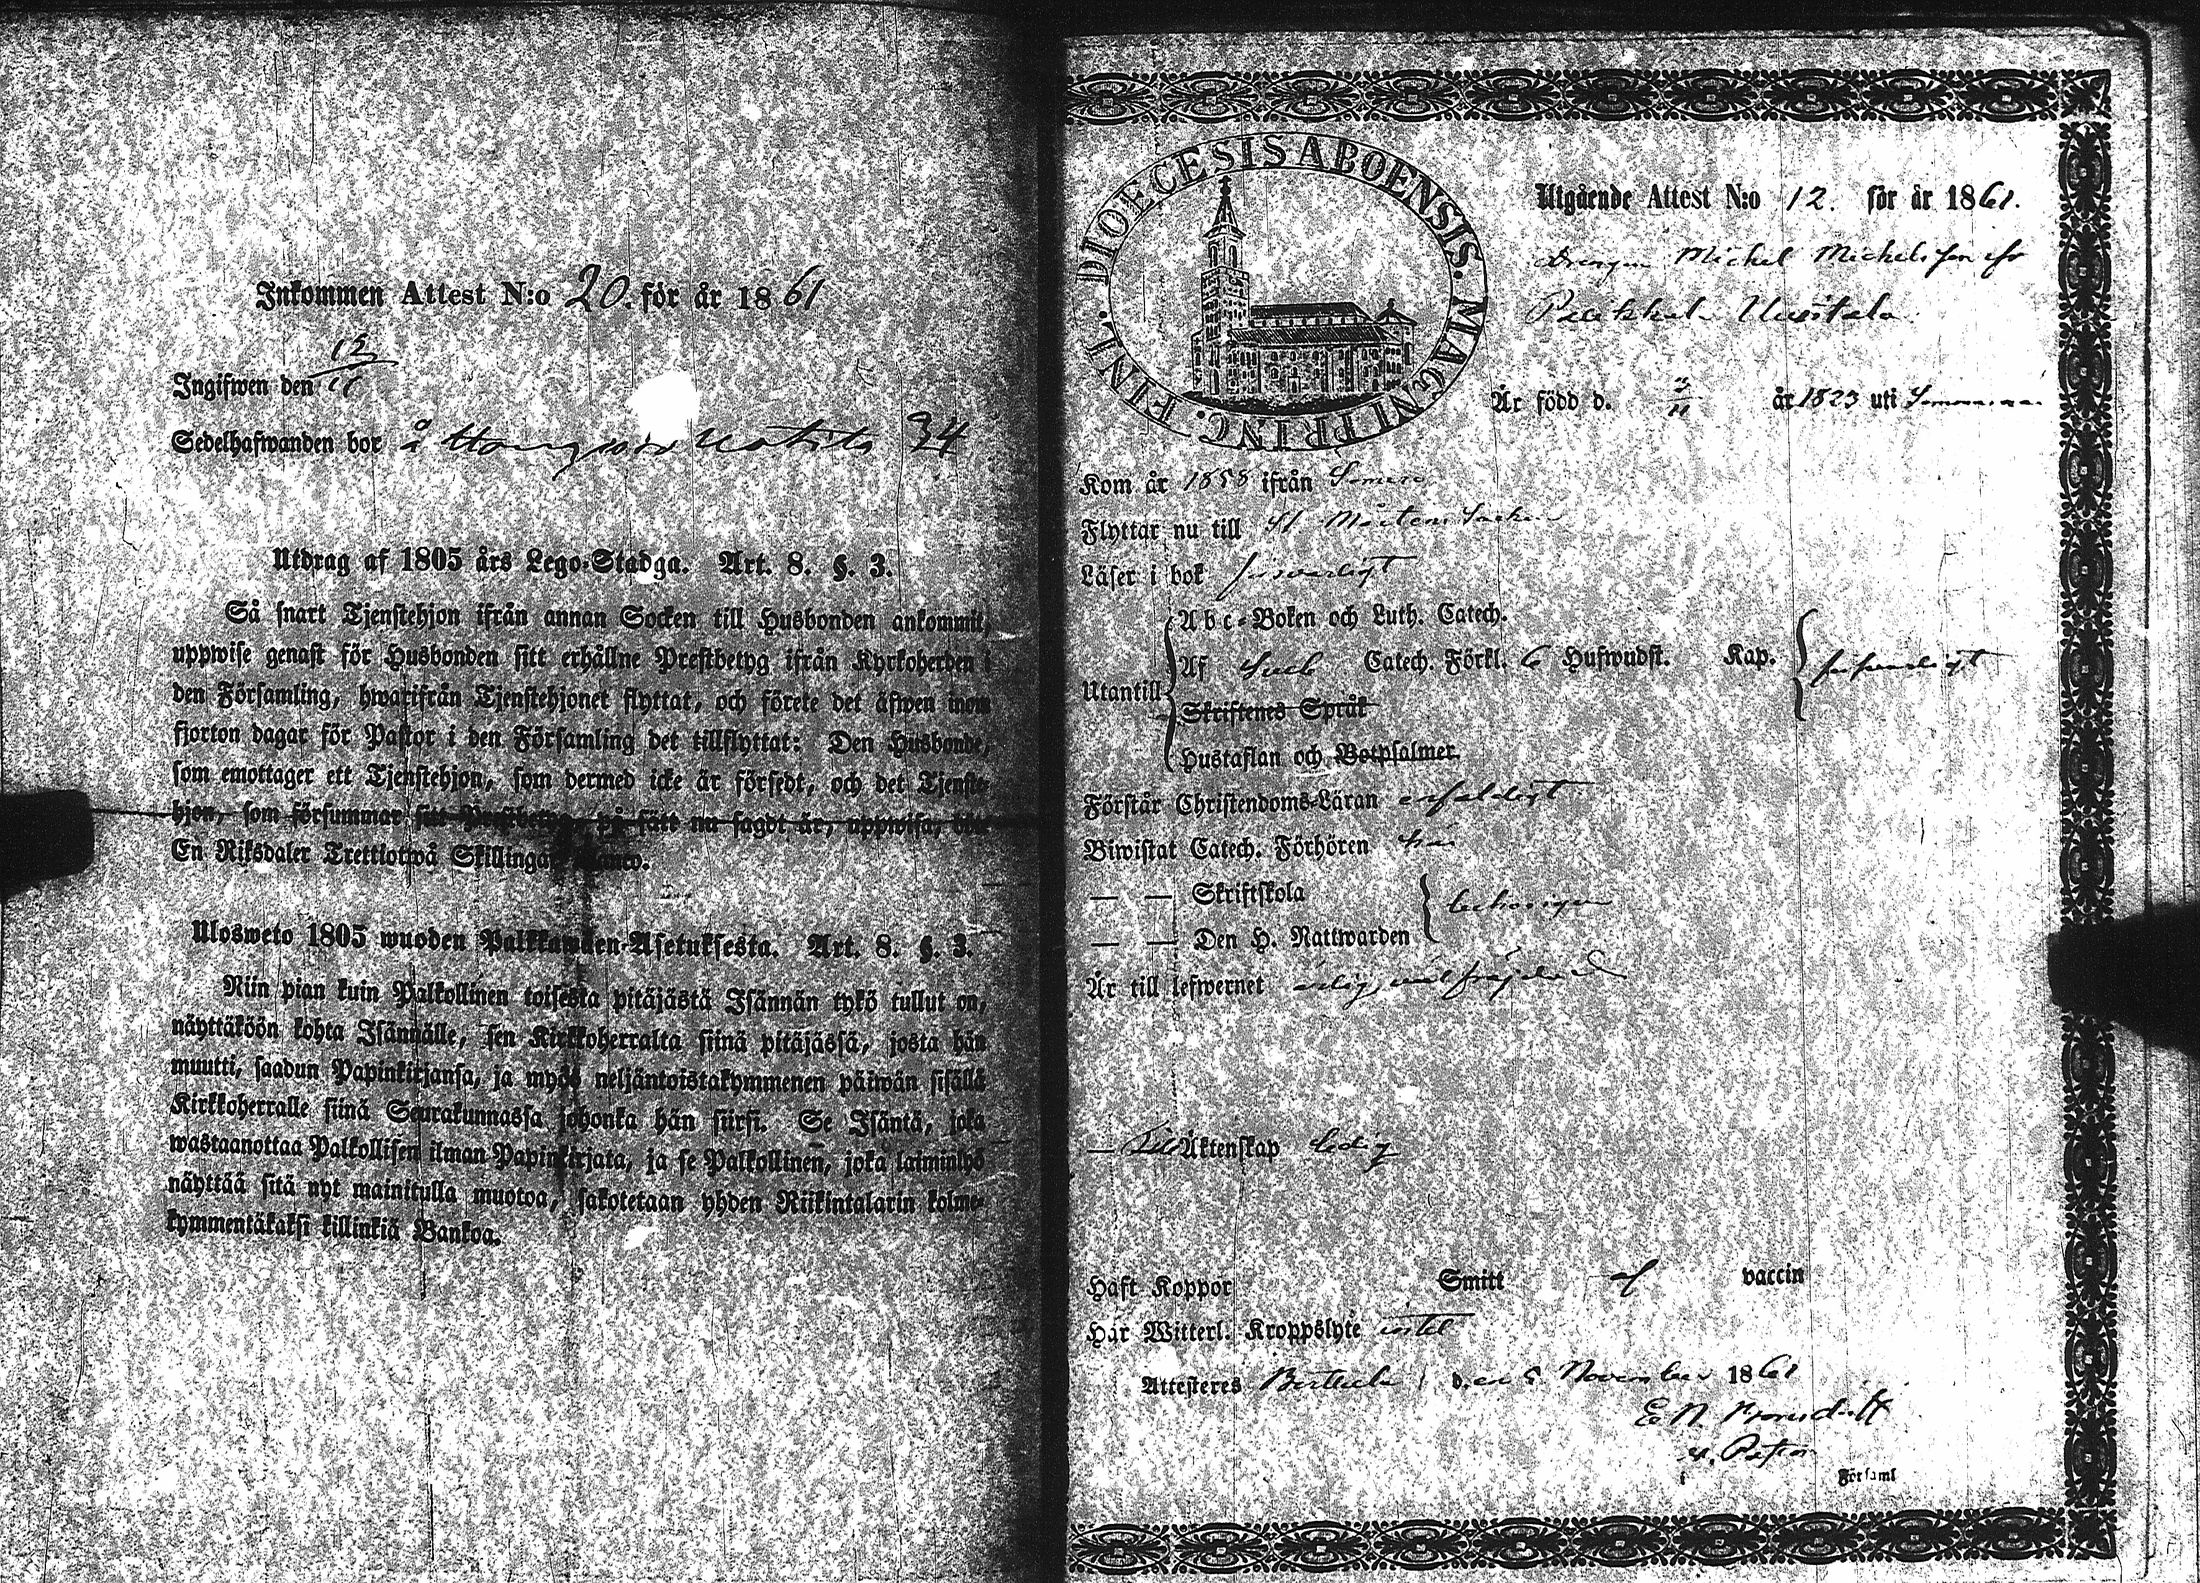 Inkommen Attest N:o 20. för år 1861
Ingifwen den 12/11
Sedelhafwanden bor å 34
Utdrag af 1805 års Lego-Stadga. Art. 8. §. 3.
Så snart Tjenstehjon ifrån annan Socken till Husbonden ankommit,
uppwise genast för Husbonden sitt erhållne Prestbetyg ifrån Kyrkoherden i
den Församling, hwarifrån Tjenstehjonet flyttat, och förete det äfwen inom
fjorton dagar för Pastor i den Församling det tillflyttat: Den Husbonde,
som emottager ett Tjenstehjon, som dermed icke är försedt, och det Tjenste-
hjon, som försummar sitt Prestbetyg, på sätt nu sagdt är, uppwisa, böte
En Riksdaler Trettiotwå Skillingar Banco.
Ulosweto 1805 wuoden Palkkawäen-Asetuksesta. Art. 8. §. 3.
Niin pian kuin Palkollinen toisesta pitäjästä Isännän tykö tullut on,
näyttäköön kohta Isännälle, sen Kirkkoherralta siinä pitäjässä, josta hän
muutti, saadun Papinkirjansa, ja myös neljäntoistakymmenen päiwän sisällä
Kirkkoherralle siinä Seurakunnassa johonka hän siirsi. Se Isäntä, joka
wastaanottaa Palkollisen ilman Papinkirjata, ja se Palkollinen, joka laiminlyö
näyttää sitä nyt mainitulla muotoa, sakotetaan yhden Riikintalarin kolme-
kymmentäkaksi killinkiä Bankoa.
DIOECESIS ABOENSIS. MAGNI PRINC. FINL.
Utgående Attest N:o 12. för år 1861.
Drengen Michel Michelsson
Uusitalo
Är född d. 3/11 år 1823 uti
Kom år 1858 ifrån Somero
Flyttar nu till St Mårtens Socken
Läser i bok försvarligt
Utantill
Abc-Boken och Luth. Catech.
Af Sueb Catech. Förkl. 6 Hufwudst. Kap. försvarligt
Skriftenes Språk
Hustaflan och Botpsalmer.
Förstår Christendoms-Läran enfaldigt
Biwistat Catech. Förhören
— — Skriftskola
— — Den H. Nattwarden behörigen
Är till lefwernet ärlig, väl frejdad
— Till Äktenskap ledig
Haft Koppor Smitt af vaccin
Har Witterl. Kroppslyte intet
Attesteres Bertula den 5 November 1861
E N
v. Pastor
i Församl